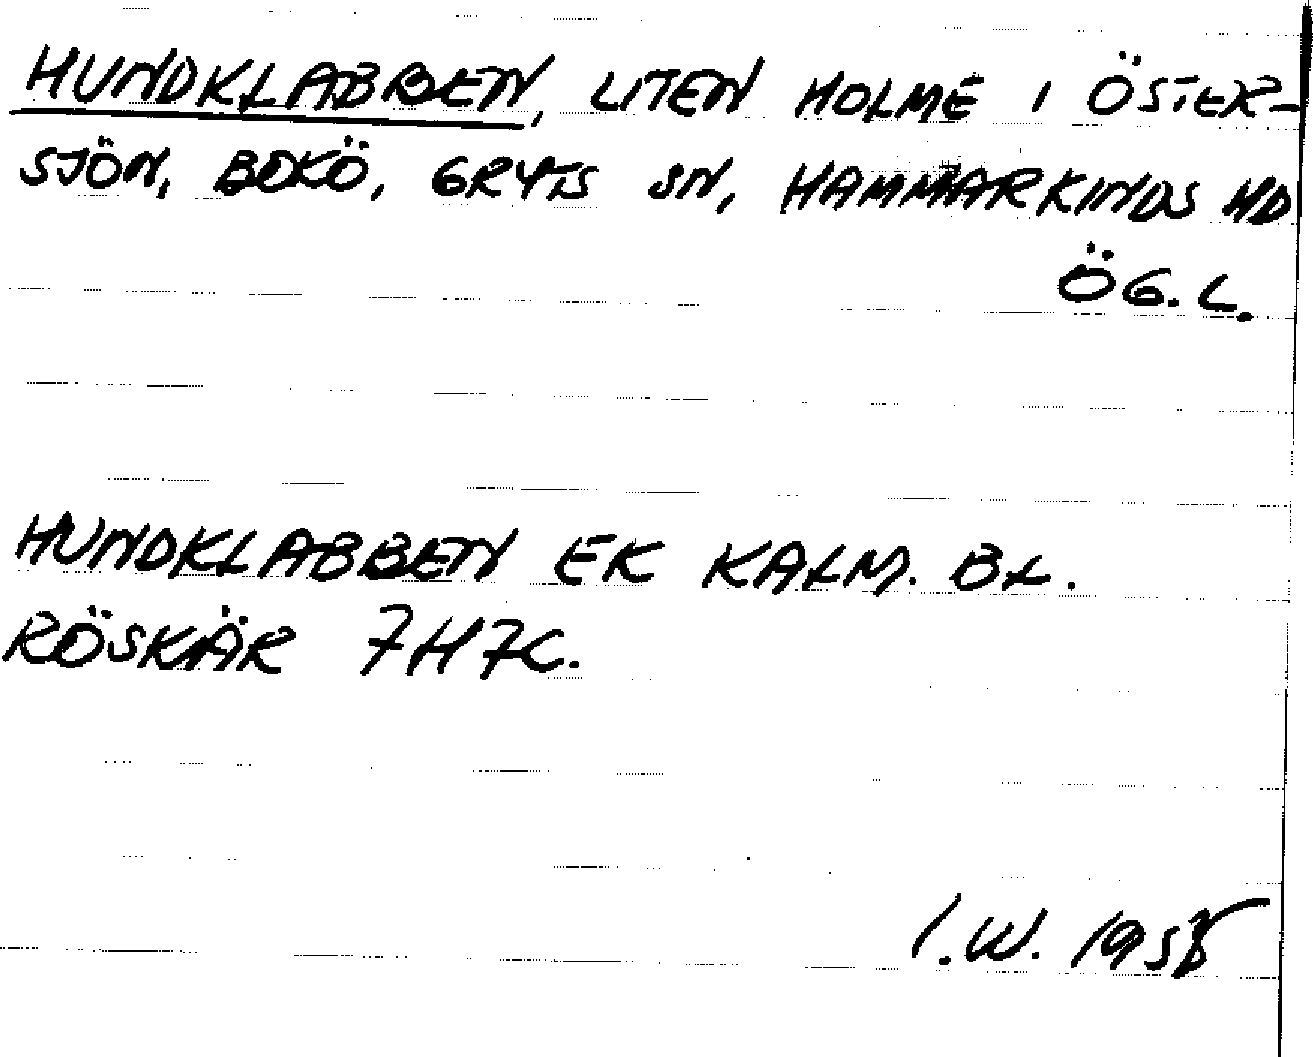 HUNDKLABBEN, LITEN HOLME I ÖSTER-
SJÖN, BOKÖ, GRYTS SN, HAMMARKINDS HD
ÖG. L.
HUNDKLABBEN EK KALM. BL.
RÖSKÄR 7H7C.
I.W.